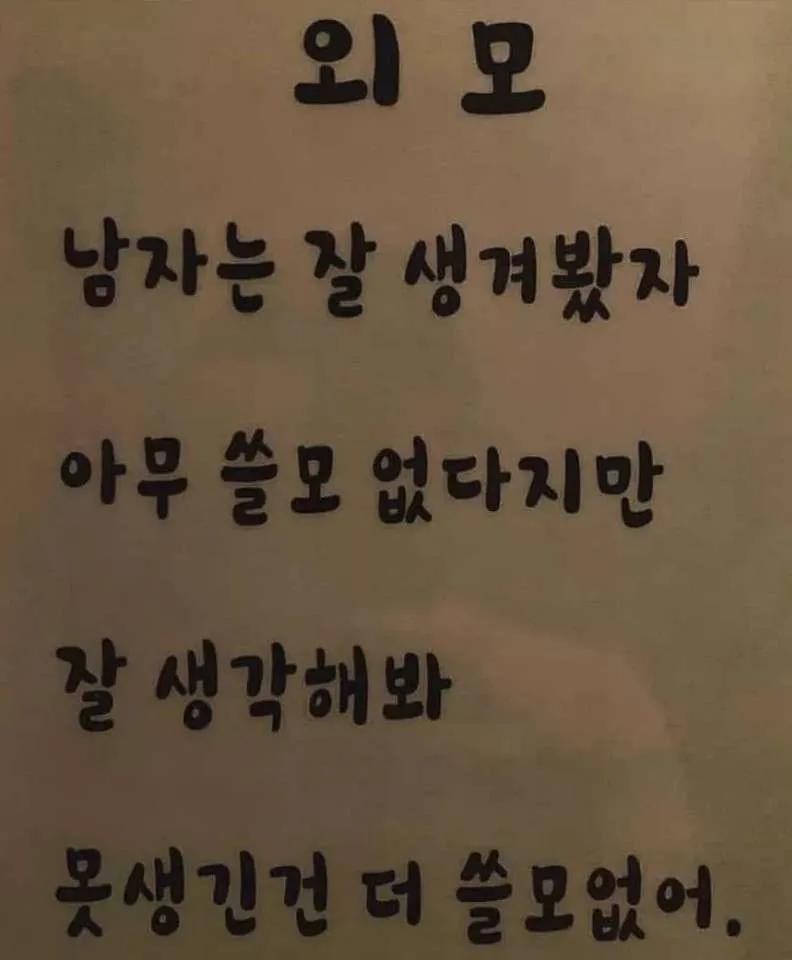 외모
남자는 잘 생겨봤자
아무 쓸모 없다지만
잘 생각해봐
못생긴건 더 쓸모없어.